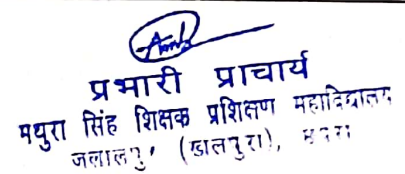 प्रभारी प्राचार्य
मथुरा सिंह शिक्षक प्रशिक्षण महाविद्यालय
जलालपुर (डालपुरा),